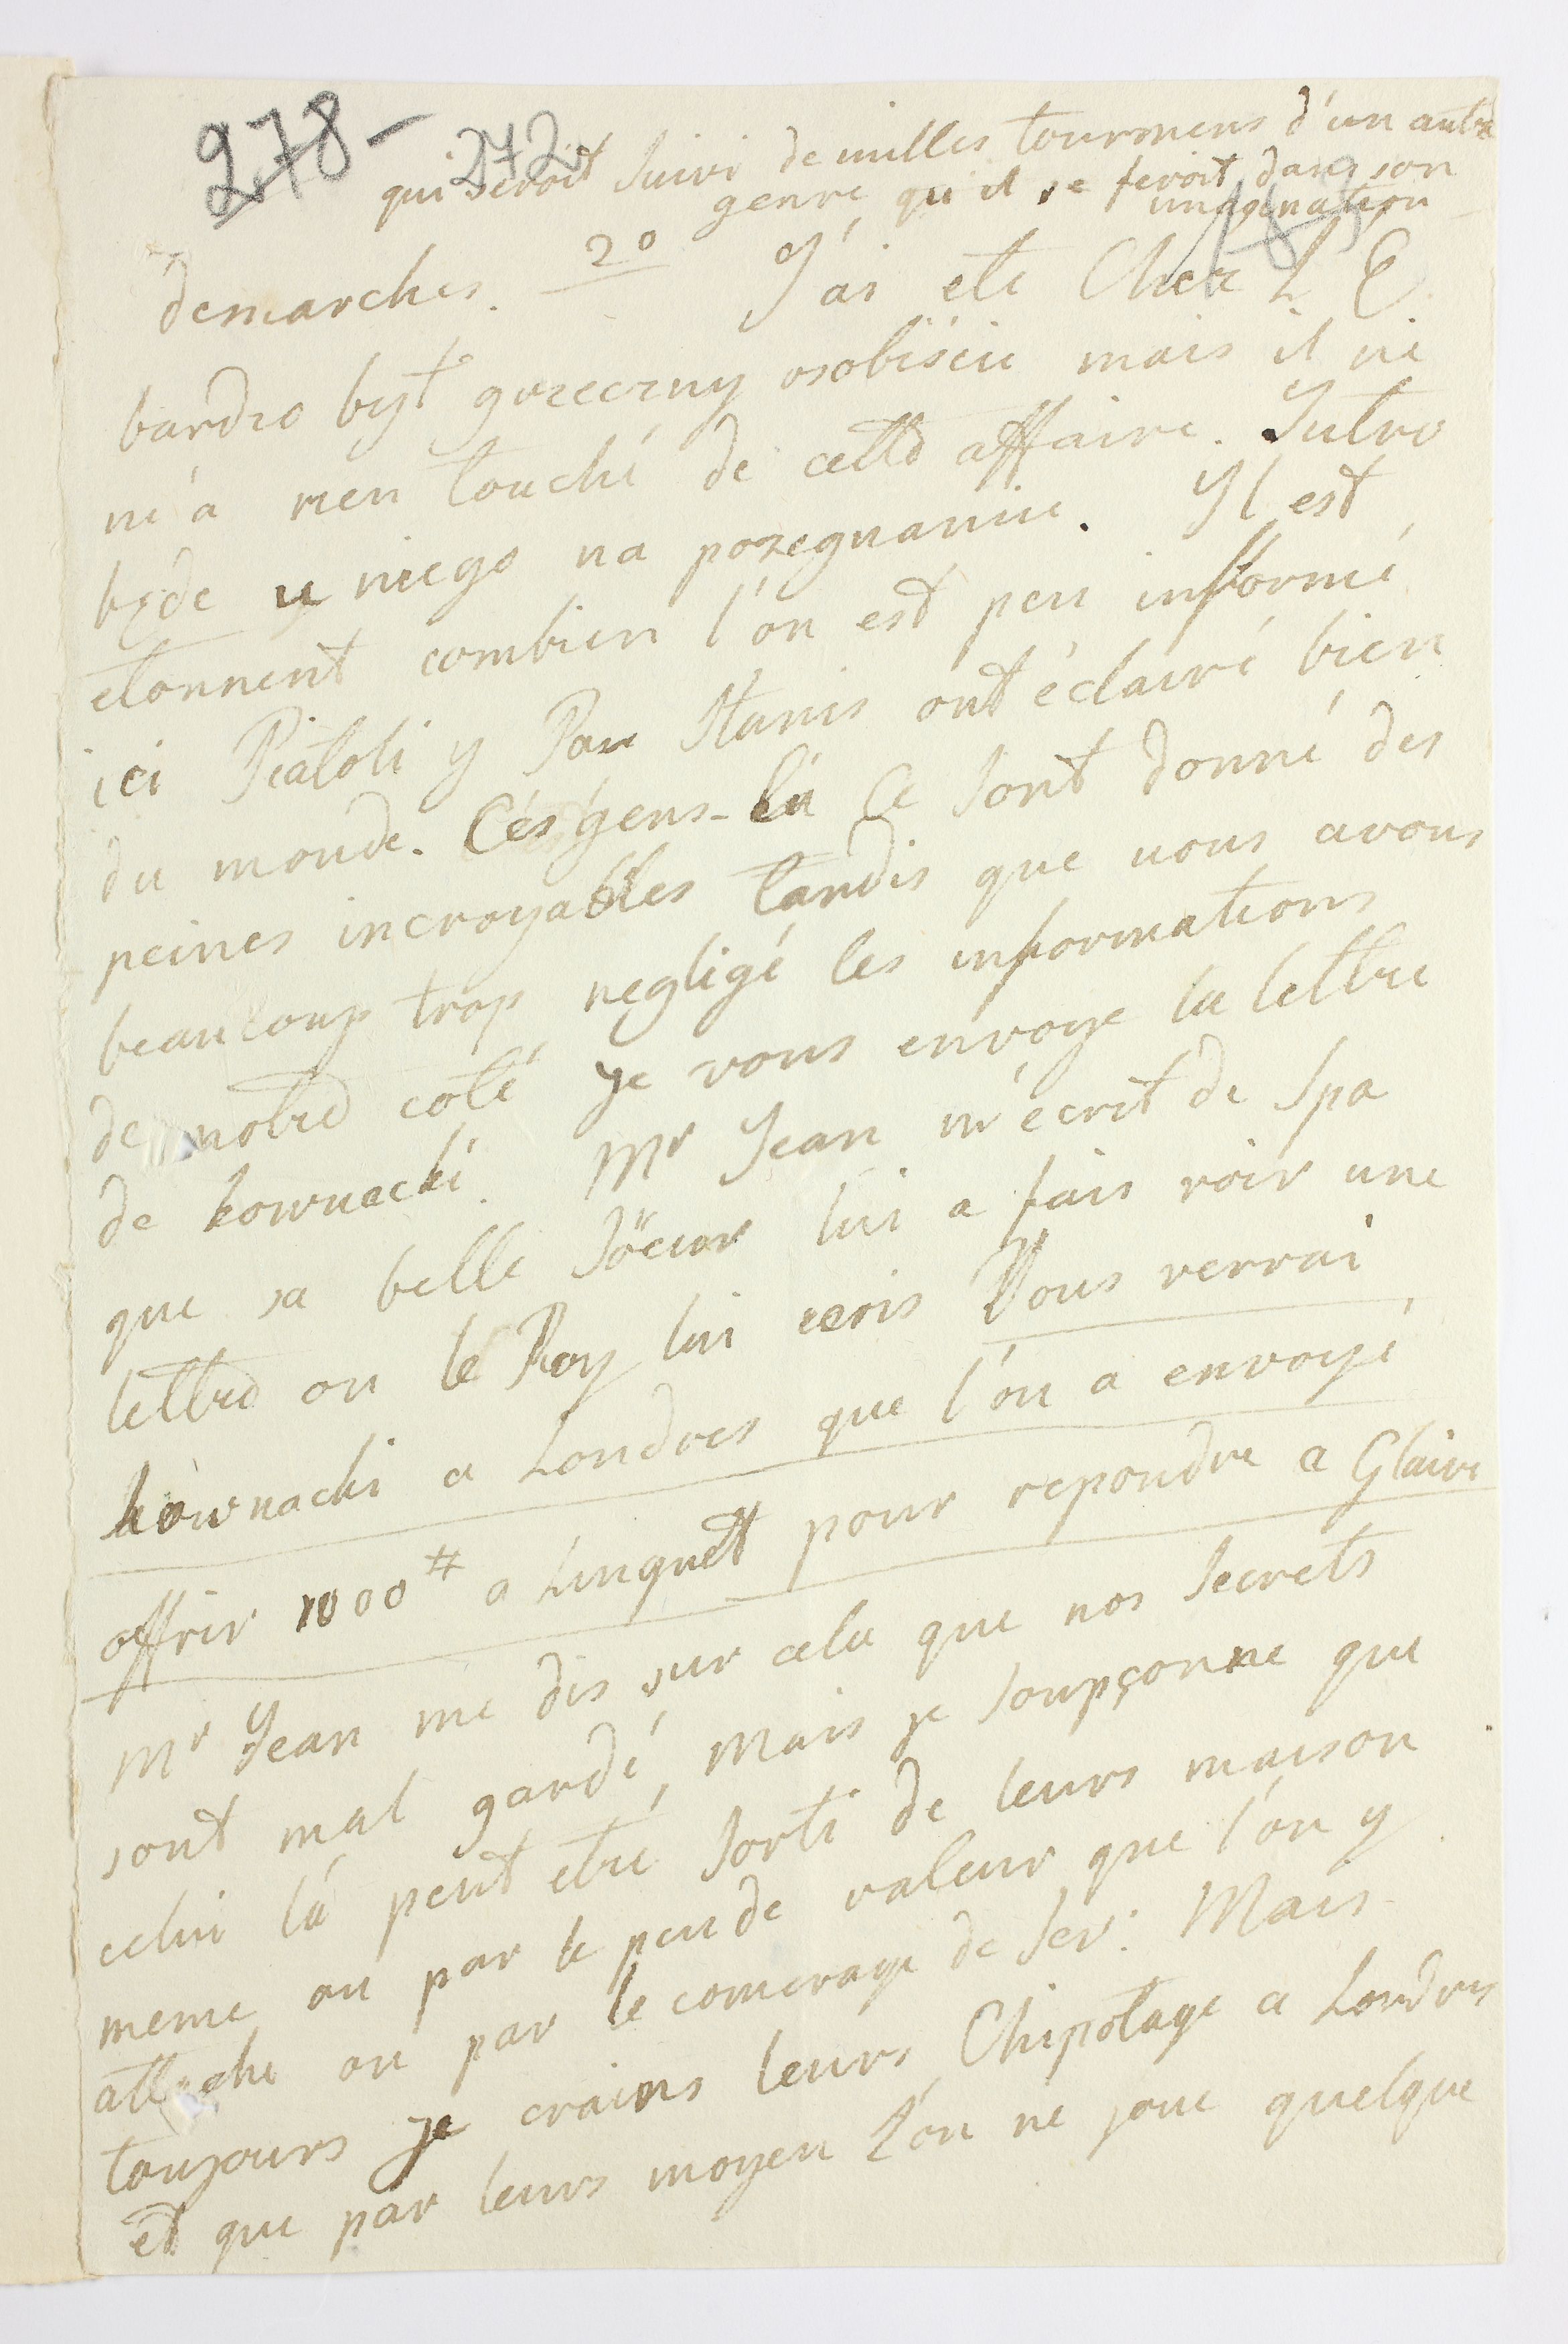 278-
272
qui seroit suivi de milles tourmens d'un autre
genre qu'il se feroit dans son
imagination
demarches. 2º J'ai ete Chez L' E
bardzo byt grzeczny osobiscie mais il ne
m'a rien touché de cette affaire. Jutro
będe u niego na pozegnanie. Il est
etonnent combien l'on est peu informé
ici Piatoli y Pan Stanis ont éclairé bien
du monde. Cés gens-la Ce sont donné des
peines incroyables tandis que nous avons
beaucoup trop negligé les informations
de notre coté je vous envoye la lettre
de kownacki. Mr Jean m'écrit de Spa
que sa belle Söeur lui a fais voir une
lettre ou le Roy lui ecris Vous verrai
kownacki a Londres que l'on a envoyé
offrir 1000# a Linguet pour repondre a Glaire
Mr Jean me dis sur cela que nos Secrets
sont mal gardé, Mais je Soupçonne que
celui là peut etre Sorti de leurs maison
meme ou par le peu de valeur que l'on y
attache ou par le comerage de Ser: Mais
toujours je crains leurs Chipotage a Londres
et que par leurs moyen L'on ne joue quelque